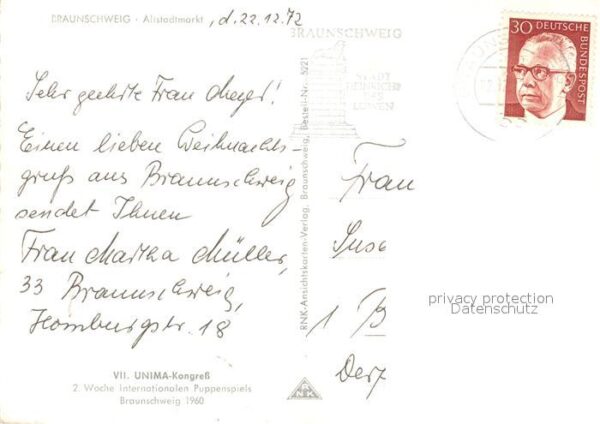 BRAUNSCHWEIG - Altstadtmarkt , d. 22.12.72
Sehr geehrte Frau Meyer!
Einen lieben Weihnachts-
gruß aus Braunschweig
sendet Ihnen
Frau Martha Müller,
33 Braunschweig,
Homburgstr. 18
VII. UNIMA-Kongreß
2. Woche internationalen Puppenspiels
Braunschweig 1960
RNK-Ansichtskarten-Verlag, Braunschweig, Bestell-Nr. 5221
RNK
BRAUNSCHWEIG
STADT
HEINRICHS
DES
LÖWEN
30 DEUTSCHE
BUNDESPOST
Frau
Suse
1 B
Derf
privacy protection
Datenschutz